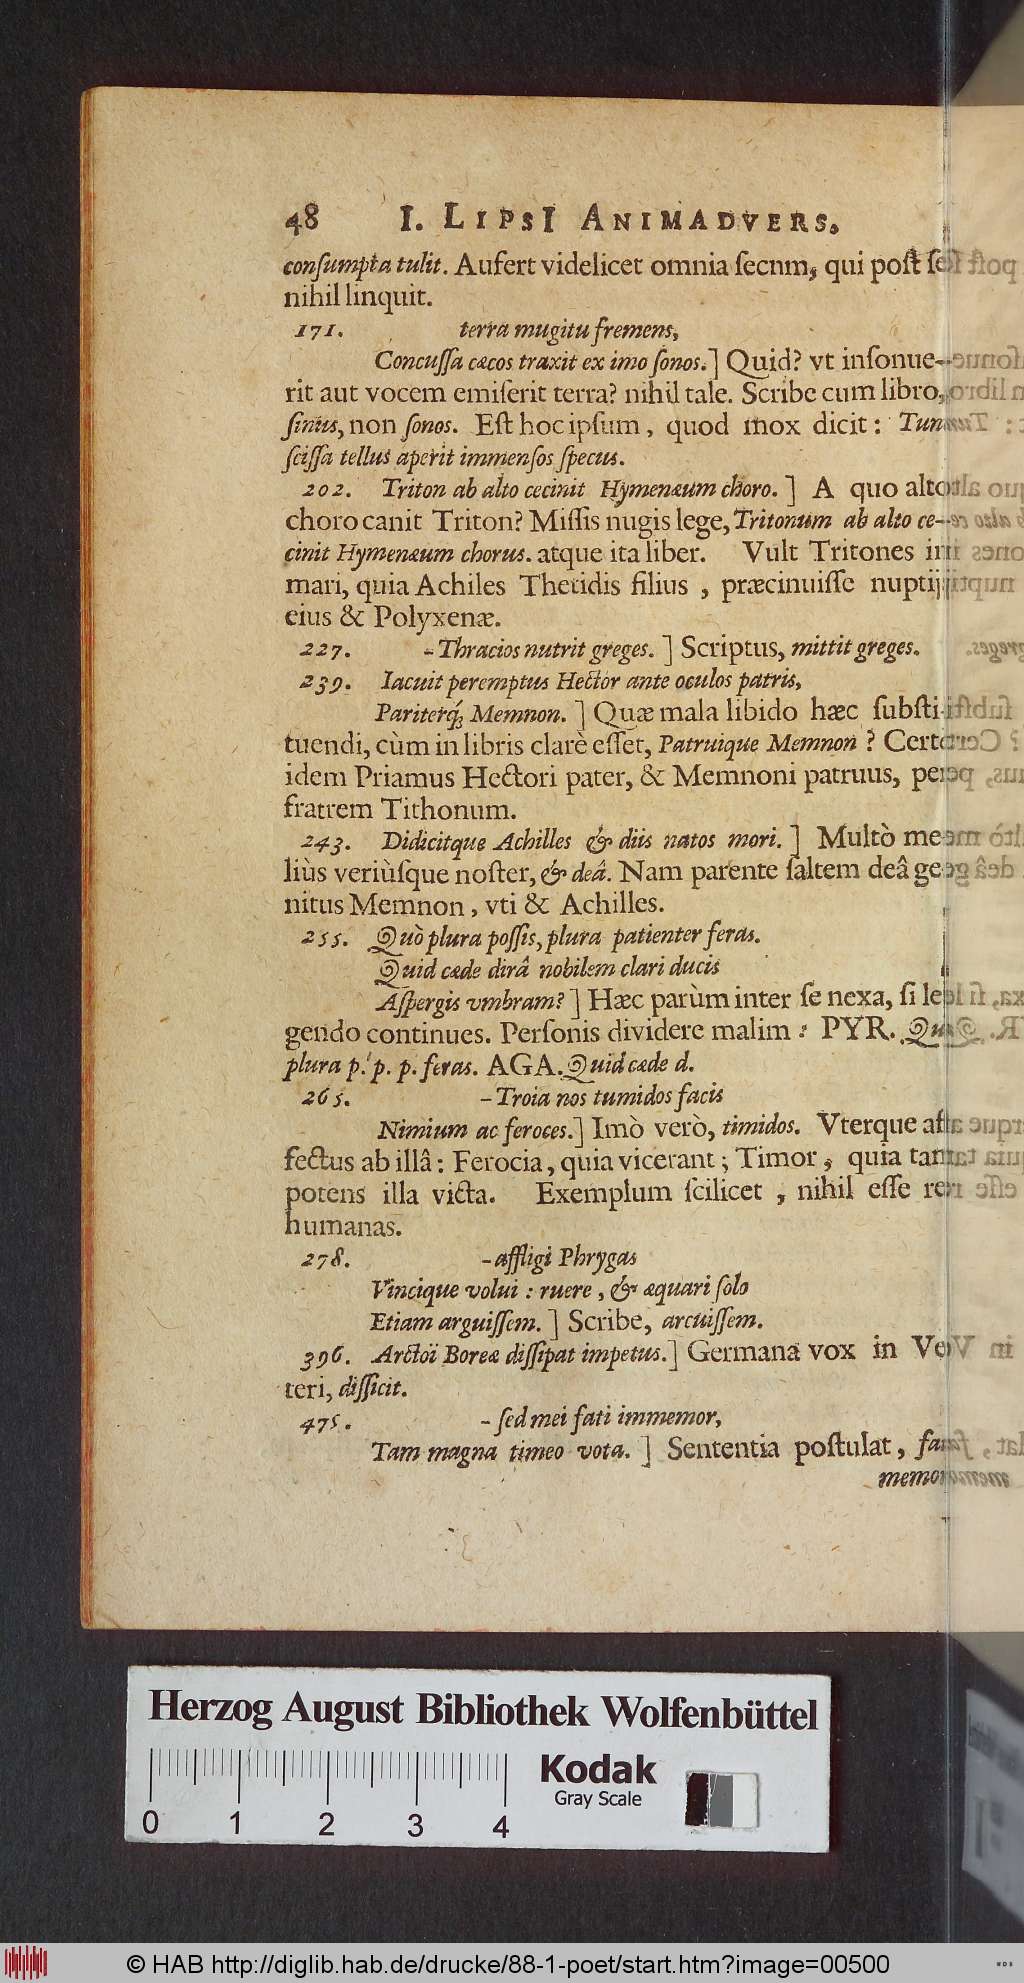 48 I. LIPSI ANIMADVERS.
conſumpta tulit. Aufert videlicet omnia ſecum, qui poſt ſe
nihil linquit.
171. terra mugitu fremens,
Concuſſa cæcos traxit ex imo ſonos.] Quid? vt inſonue-
rit aut vocem emiſerit terra? nihil tale. Scribe cum libro,
ſinus, non ſonos. Eſt hoc ipſum, quod mox dicit: Tum
ſciſſa tellus aperit immenſos ſpecus.
202. Triton ab alto cecinit Hymenæum choro.] A quo alto
choro canit Triton? Miſſis nugis lege, Tritonum ab alto ce-
cinit Hymenæum chorus. atque ita liber. Vult Tritones in
mari, quia Achiles Thetidis filius, præcinuiſſe nuptijs
eius & Polyxenæ.
227. - Thracios nutrit greges.] Scriptus, mittit greges.
239. Iacuit peremptus Hector ante oculos patris,
Pariterq́; Memnon.] Quæ mala libido hæc ſubſti-
tuendi, cùm in libris clarè eſſet, Patruique Memnon? Certe
idem Priamus Hectori pater, & Memnoni patruus, per
fratrem Tithonum.
243. Didicitque Achilles & diis natos mori.] Multò me-
liùs veriùſque noſter, & deâ. Nam parente ſaltem deâ ge-
nitus Memnon, vti & Achilles.
255. Quò plura poſſis, plura patienter feras.
Quid cæde dirâ nobilem clari ducis
Aſpergis vmbram?] Hæc parùm inter ſe nexa, ſi le-
gendo continues. Perſonis dividere malim: PYR. Quo
plura p. p. p. feras. AGA. Quid cæde d.
265. - Troia nos tumidos facis
Nimium ac feroces.] Imò verò, timidos. Vterque af-
fectus ab illâ: Ferocia, quia vicerant; Timor, quia tam
potens illa victa. Exemplum ſcilicet, nihil eſſe res
humanas.
278. - affligi Phrygas
Vincique volui: ruere, & æquari ſolo
Etiam arguiſſem.] Scribe, arcuiſſem.
396. Arctoï Boreæ diſſipat impetus.] Germana vox in Ve-
teri, diſſicit.
475. - ſed mei fati immemor,
Tam magna timeo vota.] Sententia poſtulat,
Herzog August Bibliothek Wolfenbüttel
Kodak
Gray Scale
0 1 2 3 4
© HAB http://diglib.hab.de/drucke/88-1-poet/start.htm?image=00500